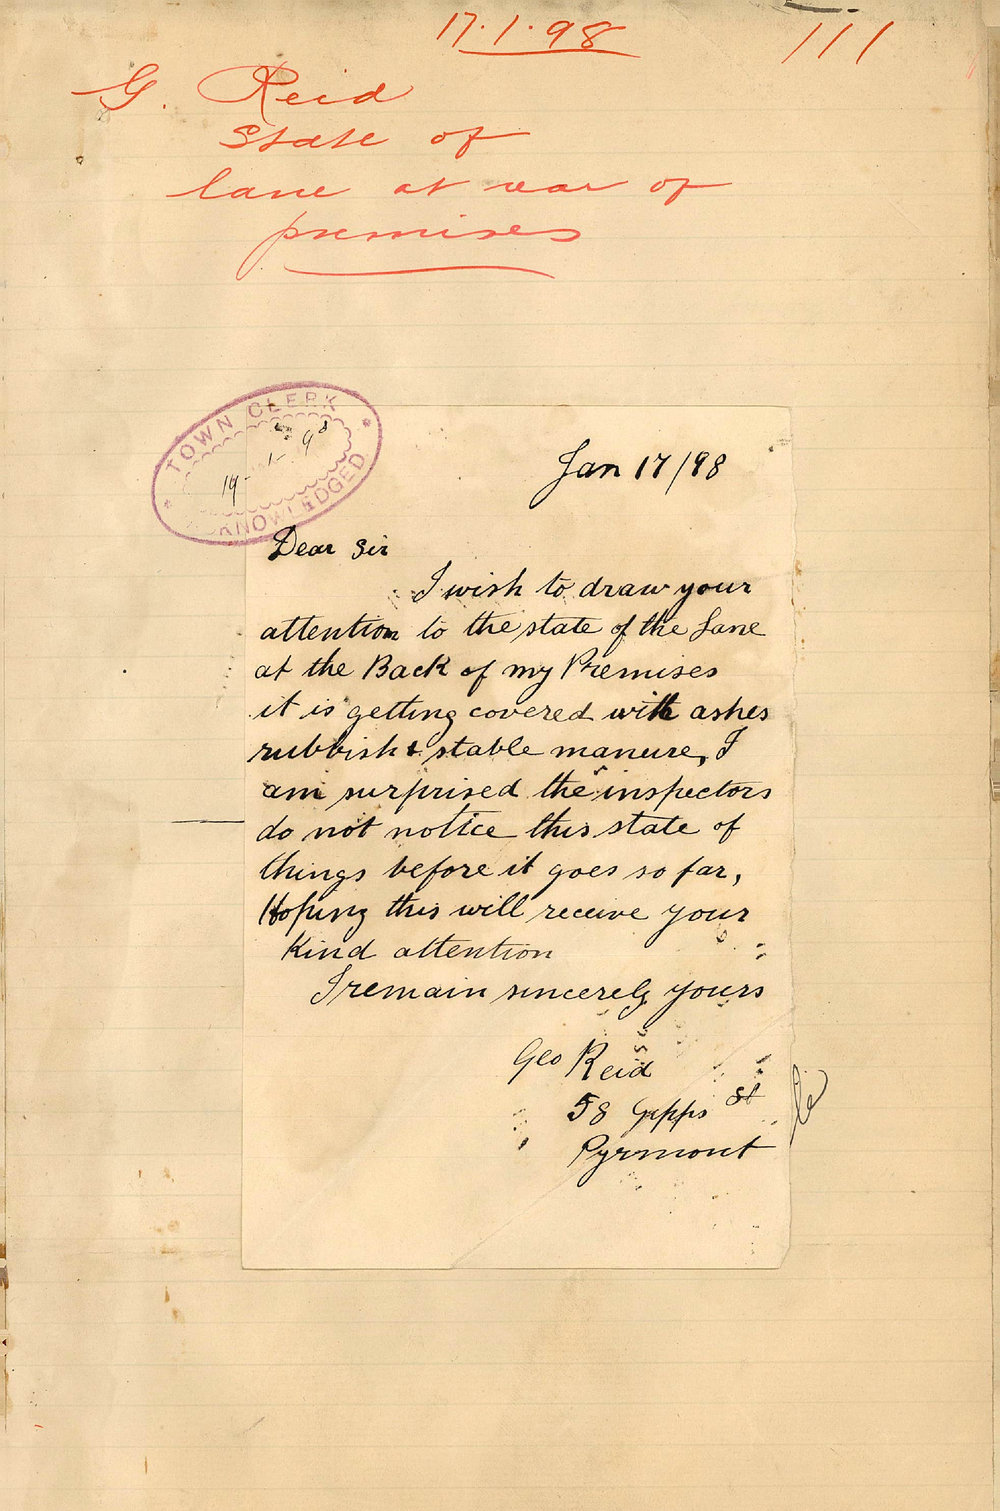 17.1.98 111
G. Reid
State of
lane at rear of
premises
TOWN CLERK
19-1-98
ACKNOWLEDGED
Jan 17/98
Dear Sir
I wish to draw your
attention to the state of the Lane
at the Back of my Premises
it is getting covered with ashes
rubbish & stable manure, I
am surprised the inspectors
do not notice this state of
things before it goes so far,
Hoping this will receive your
Kind attention
I remain sincerely yours
Geo Reid
58 Gipps St
Pyrmont